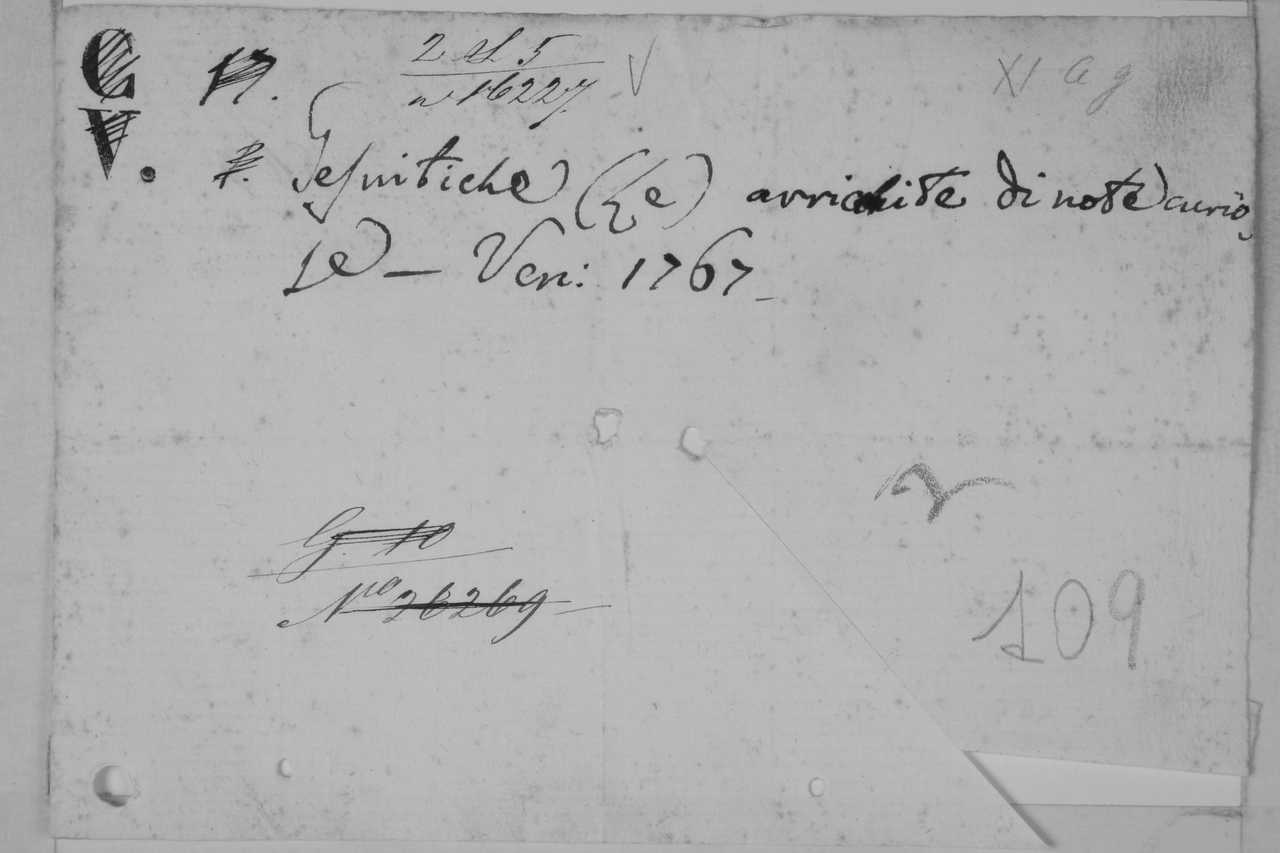 G
V.
2 al 5
n° 16227
V
Gesuitiche (Le) arrichite di note curio
se – Ven: 1767
G. 10
N.ro 26269
109